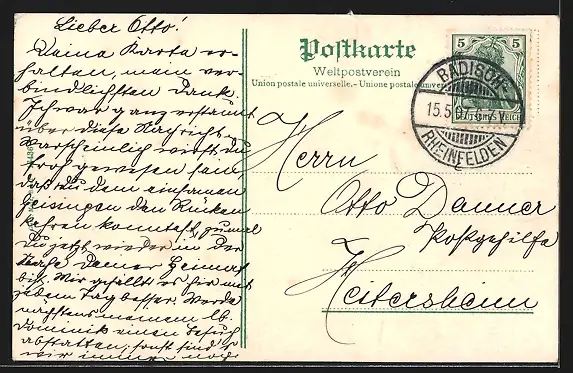 Lieber Otto!
Deine Karte er-
halten, mein ver-
bindlichsten Dank.
Ich war ganz erstaunt
über diese Nachricht.
Warscheinlich wirst du
froh gewesen sein,
daß du dem einsamen
Geisingen den Rücken
kehren konntest, zumal
du jetzt wieder in der
Nähe deiner Heimat
bist. Mir gefällt es hier mit
jedem Tag besser. Werde
nächstens meinem lb.
Dominik einen Besuch
abstatten, sonst sind
wir immer noch
Postkarte
Weltpostverein
Union postale universelle. - Unione postale univer
5 5
DEUTSCHES REICH
BADISCH-
15.5.07. 6-7 V.
RHEINFELDEN
Herrn
Otto Danner
Postgehilfe
Heitersheim